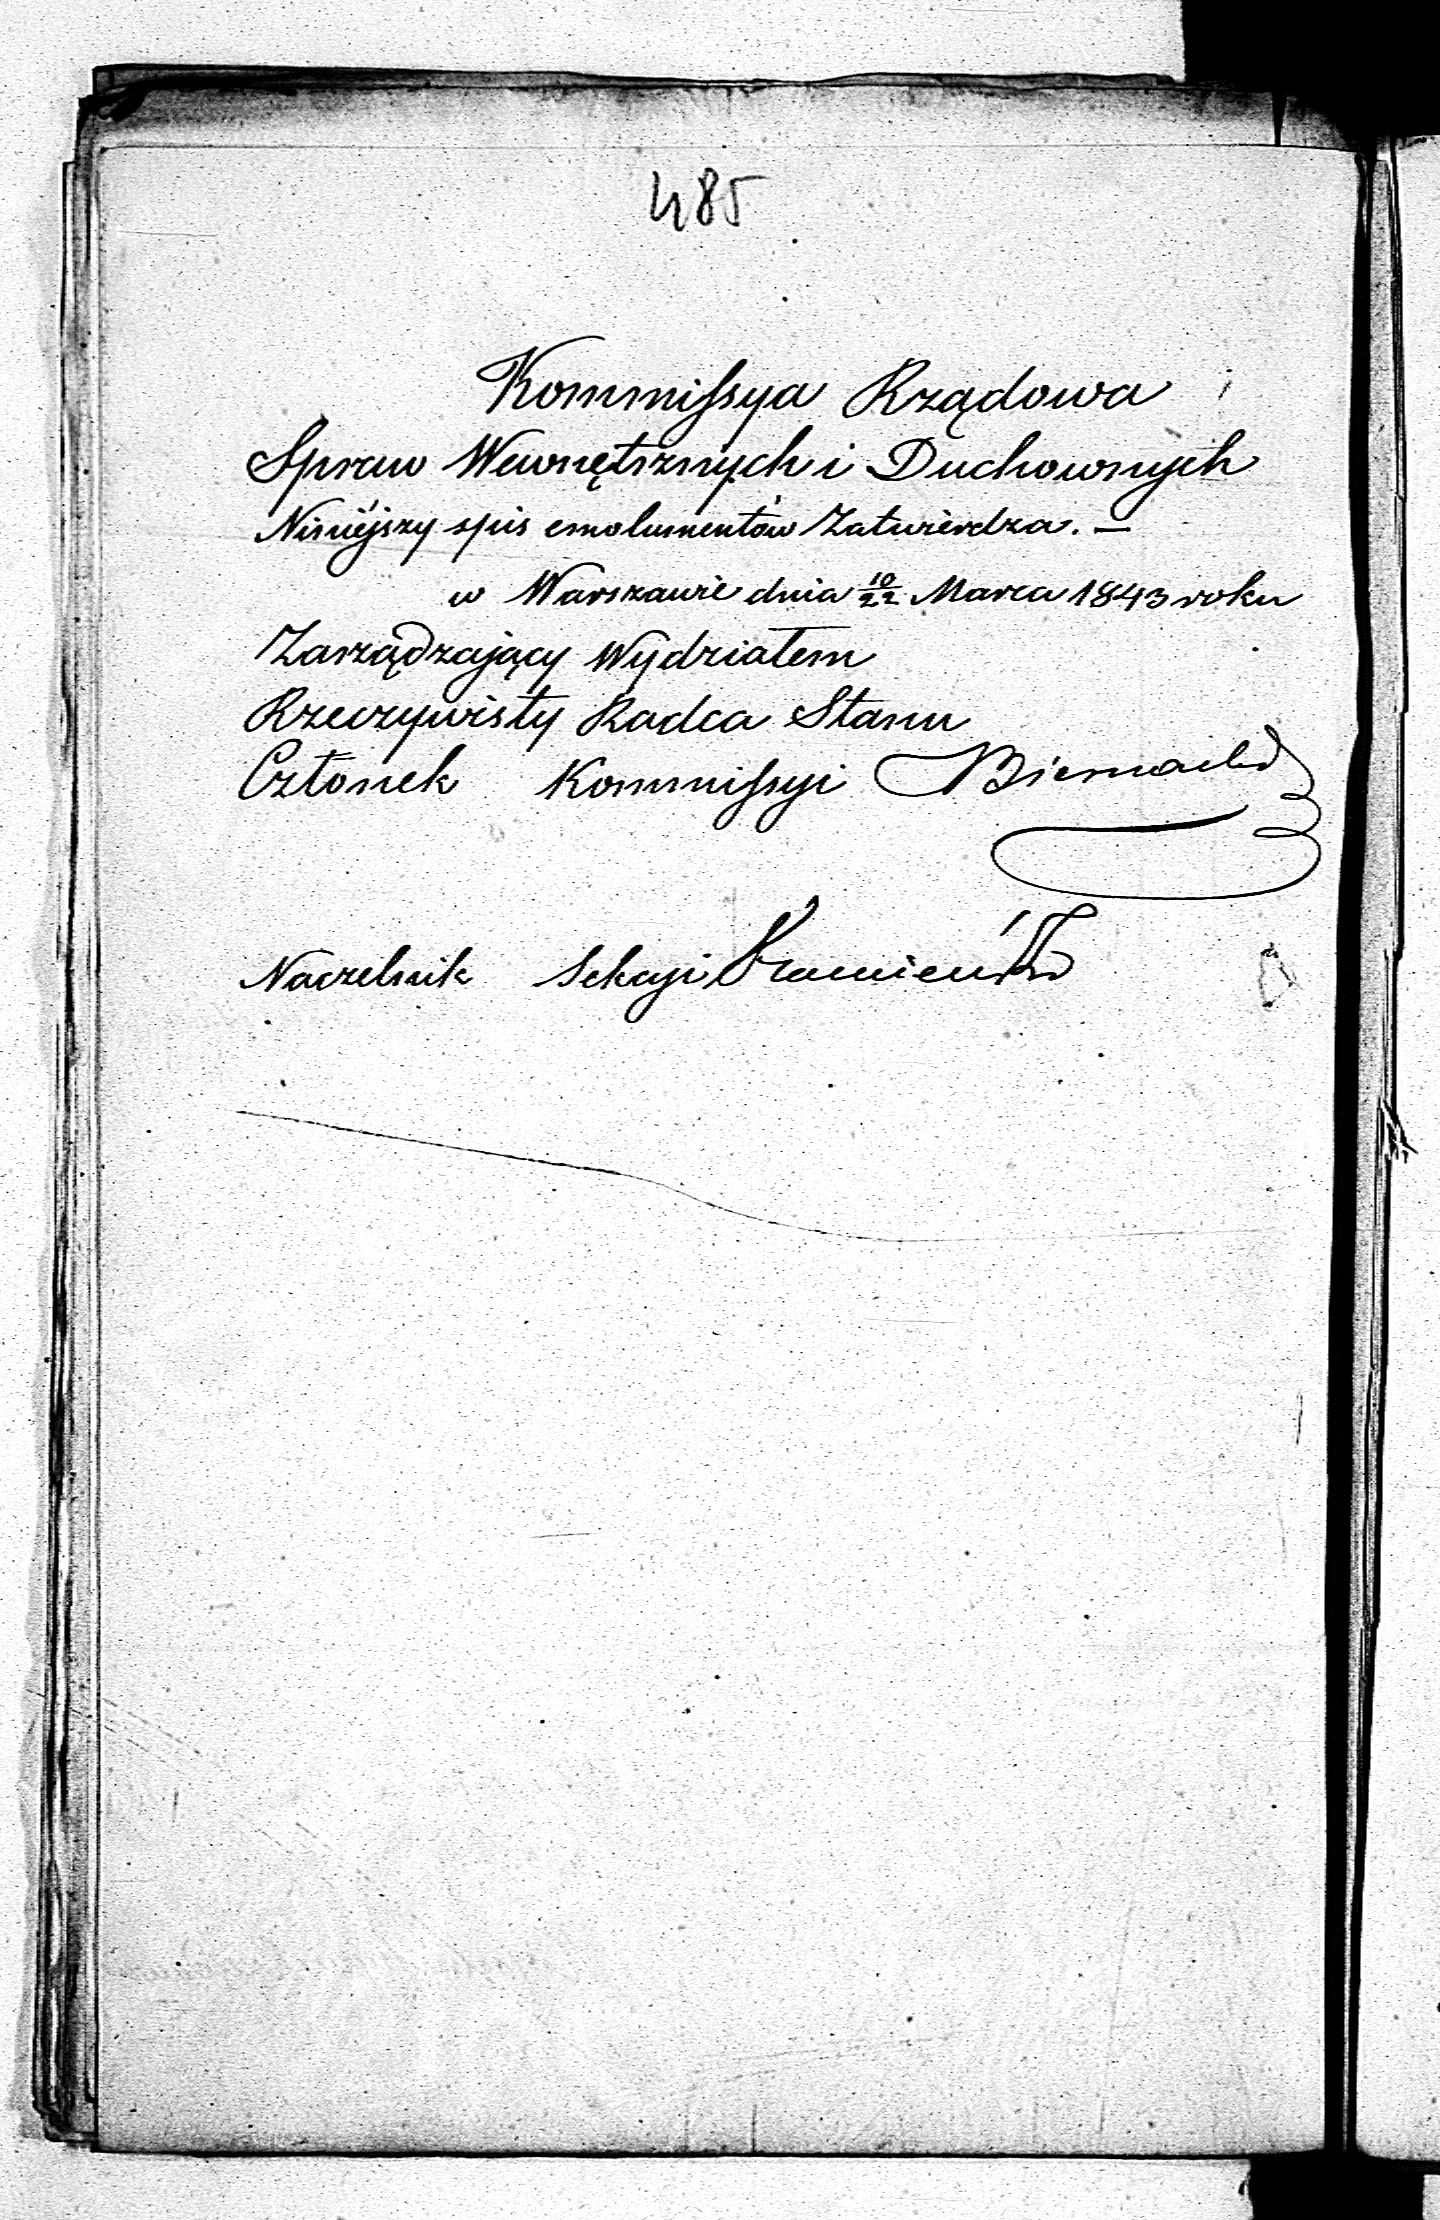 485
Kommissya Rządowa
Spraw Wewnętrznych i Duchownych
Niniéjszy spis emolumentów Zatwierdza. —
w Warszawie dnia 10/22 Marca 1843 roku
Zarządzający Wydziałem
Rzeczywisty Radca Stanu
Członek Kommissyi Biernacki
Naczelnik Sekcyi Kamieński